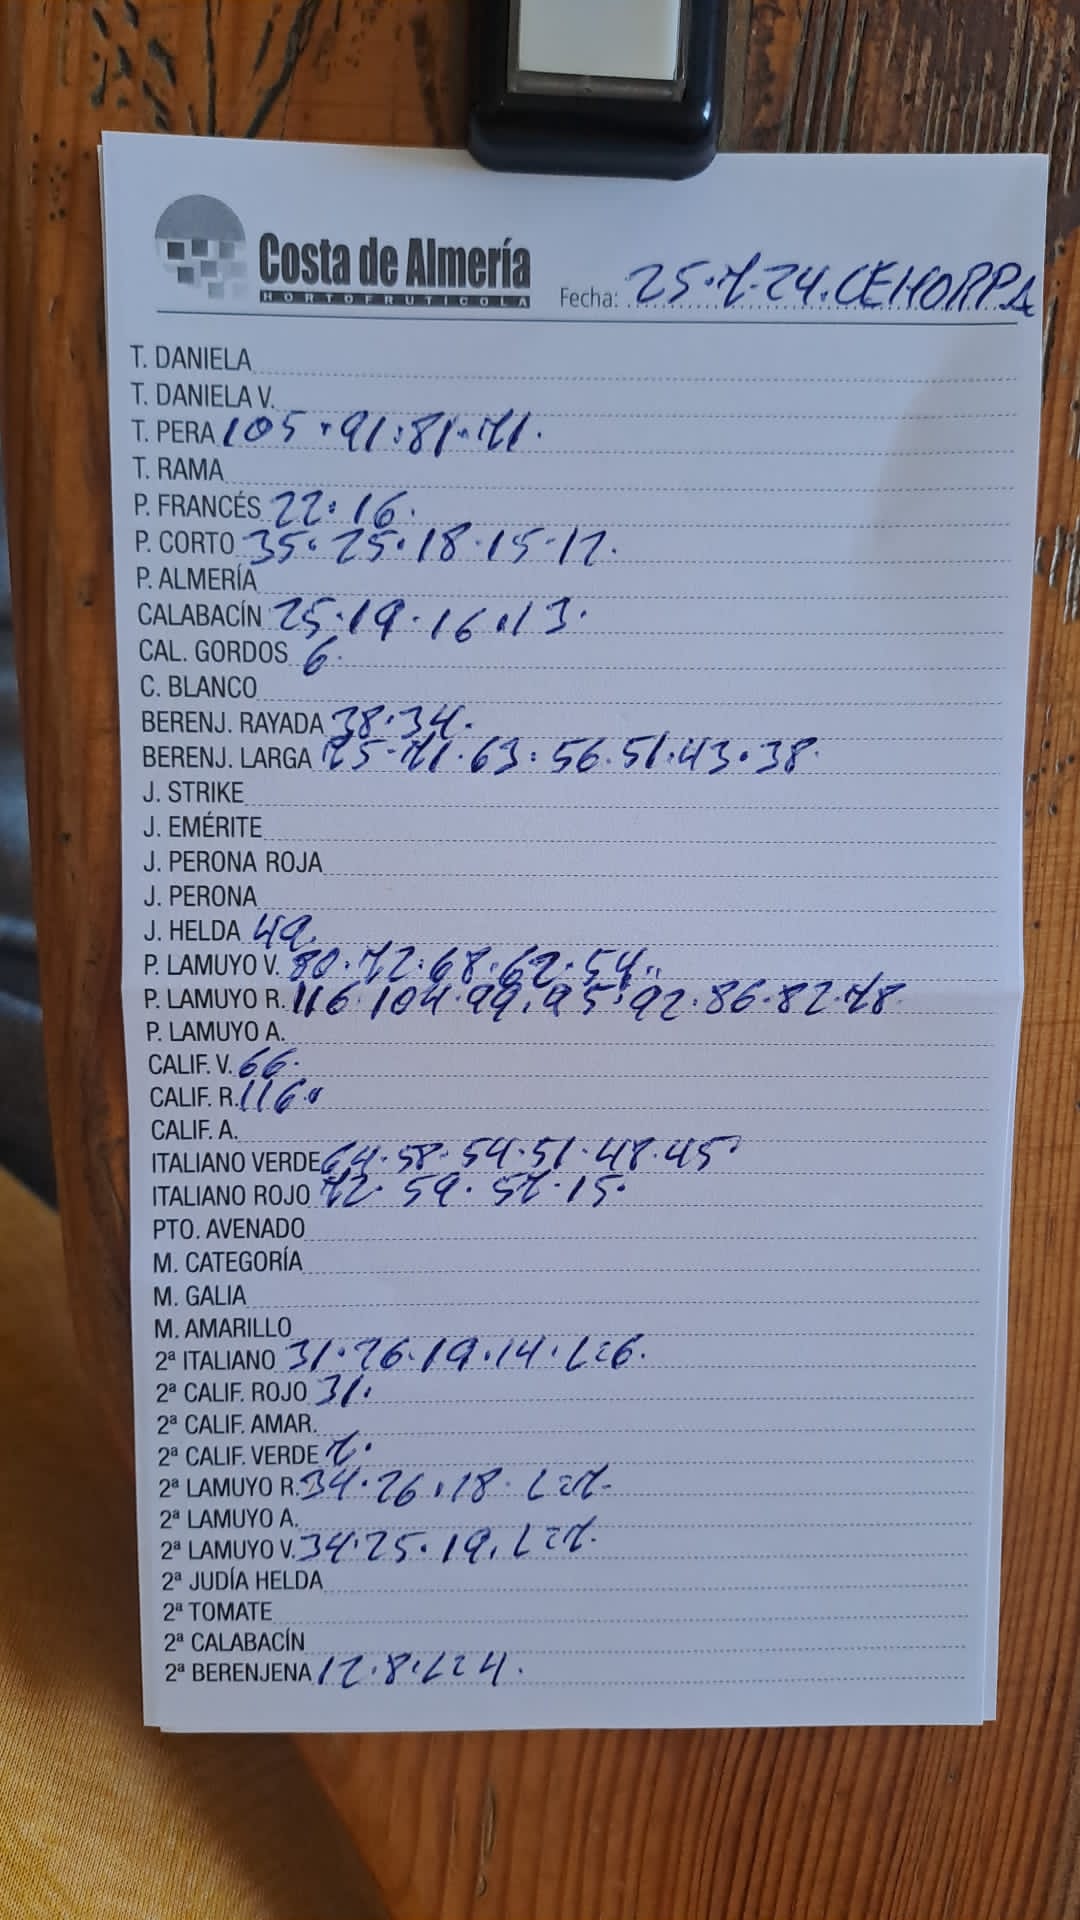 Costa de Almería
HORTOFRUTICOLA
Fecha: 25.7.24.CEHORPA
T. DANIELA
T. DANIELA V.
T. PERA 105.91.81.71.
T. RAMA
P. FRANCÉS 22.16.
P. CORTO 35.25.18.15.12.
P. ALMERÍA
CALABACÍN 25.19.16.13.
CAL. GORDOS 6.
C. BLANCO
BERENJ. RAYADA 38.34.
BERENJ. LARGA 75.71.63.56.51.43.38.
J. STRIKE
J. EMÉRITE
J. PERONA ROJA
J. PERONA
J. HELDA 49.
P. LAMUYO V. 80.72.68.62.54..
P. LAMUYO R. 116.104.99.95.92.86.82.78.
P. LAMUYO A.
CALIF. V. 66.
CALIF. R. 116.
CALIF. A.
ITALIANO VERDE 64.58.54.51.48.45.
ITALIANO ROJO 72.59.57.15.
PTO. AVENADO
M. CATEGORÍA
M. GALIA
M. AMARILLO
2ª ITALIANO 31.26.19.14.L=6.
2ª CALIF. ROJO 31.
2ª CALIF. AMAR.
2ª CALIF. VERDE 7.
2ª LAMUYO R. 34.26.18.L=7.
2ª LAMUYO A.
2ª LAMUYO V. 34.25.19.L=7.
2ª JUDÍA HELDA
2ª TOMATE
2ª CALABACÍN
2ª BERENJENA 12.8.L=4.